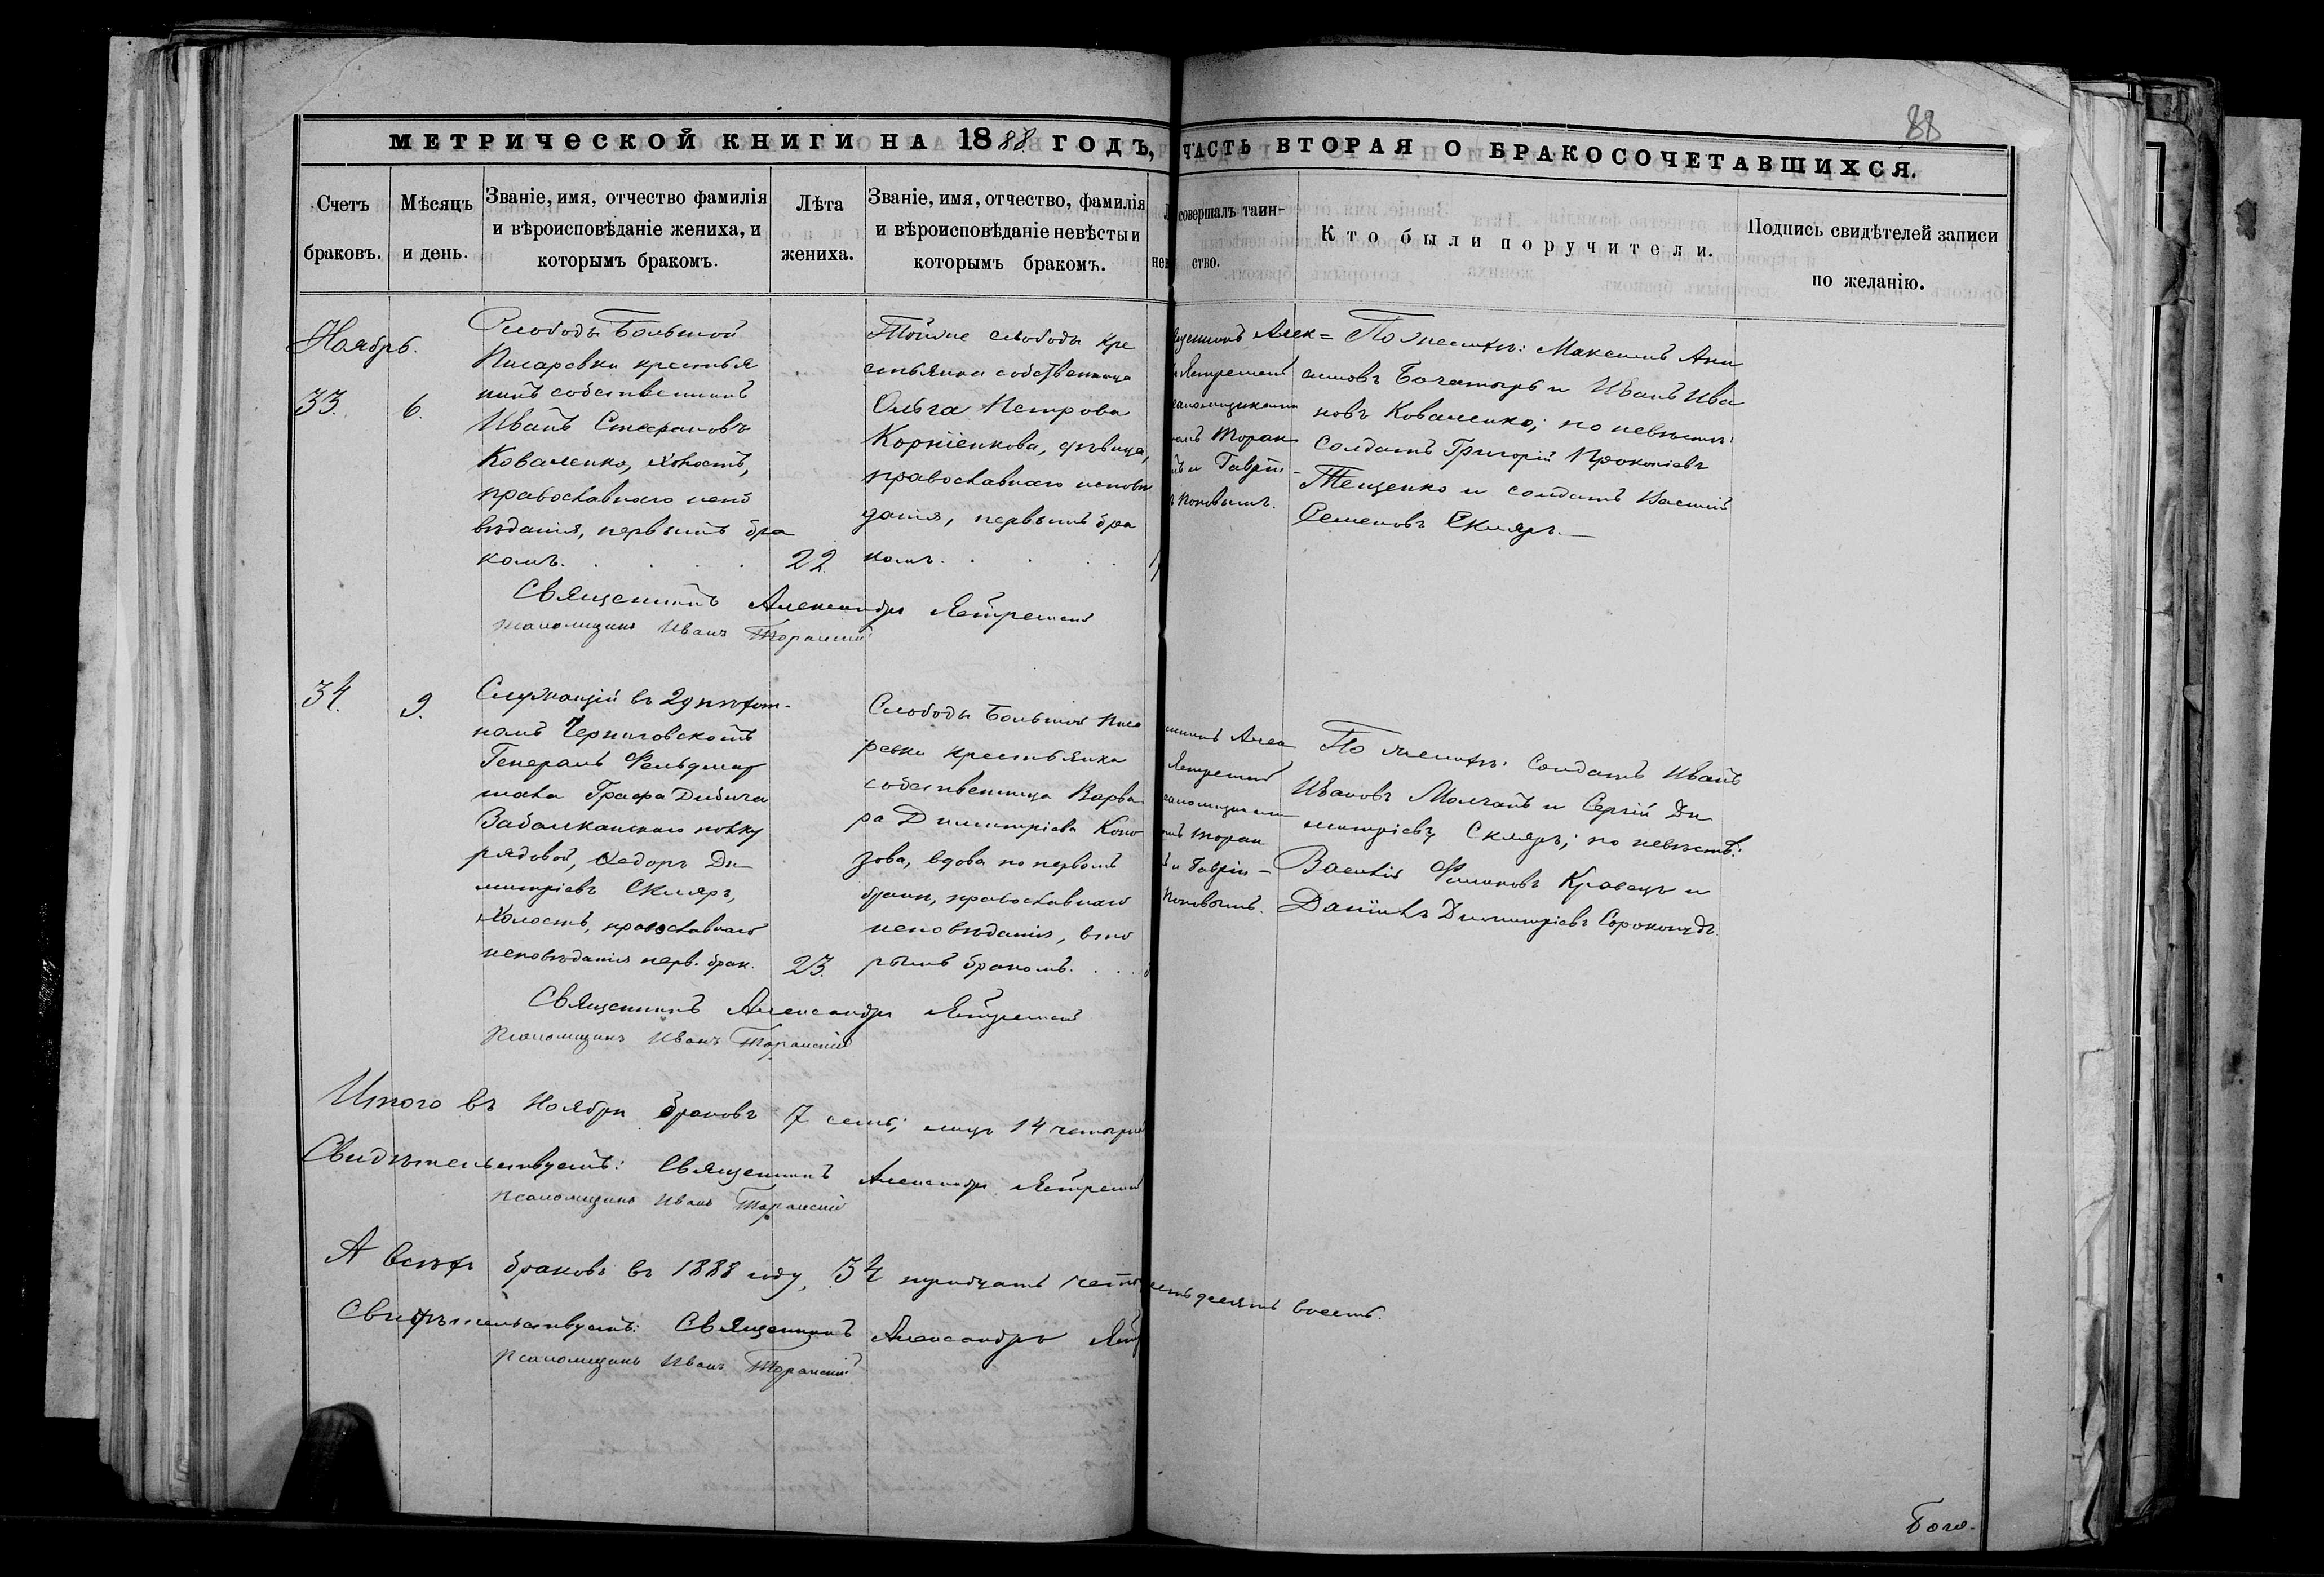 88
МЕТРИЧЕСКОЙ КНИГИ НА 1888 ГОДЪ, ЧАСТЬ ВТОРАЯ О БРАКОСОЧЕТАВШИХСЯ.
Счетъ
браковъ.
Мѣсяцъ
и день.
Званіе, имя, отчество фамилія
и вѣроисповѣданіе жениха, и
которымъ бракомъ.
Лѣта
жениха.
Званіе, имя, отчество, фамилія
и вѣроисповѣданіе невѣсты и
которымъ бракомъ.
Л
нев
совершалъ таин-
ство.
Кто были поручители.
Подпись свидѣтелей записи
по желанію.
Ноябрь.
33.
6.
Слободы Большой
Писаревки крестья
нинъ собственникъ
Иванъ Стефановъ
Коваленко, холостъ,
православнаго испо
вѣданія, первымъ бра
комъ.
22.
Тойже слободы кре
стьянка собственница
Ольга Петрова
Корніенкова, дѣвица,
православнаго исповѣ
данія, первымъ бра
комъ.
Алек=
Торан
и Гаврі-
Поповымъ.
По женихѣ: Максимъ Ани
симовъ Богатырь и Иванъ Ива
новъ Коваленко; по невѣстѣ:
Солдатъ Григорій Прокопіевъ
Тещенко и солдатъ Василій
Семеновъ Скляръ.
Священникъ Александръ Ястремскій
псаломщикъ Иванъ Торанскій
34.
9.
Служащій въ 29 пѣхот-
номъ Черниговскомъ
Генералъ Фельдмар
шала Графа Дибича
Забалканскаго полку
рядовой, Ѳедоръ Ди
митріевъ Скляръ,
холостъ, православнаго
исповѣданія перв. брак.
23.
Слободы Большой Писа
ревки крестьянка
собственница Варва
ра Димитріева Коло
зова, вдова по первомъ
бракѣ, православнаго
исповѣданія, вто
рымъ бракомъ.
Алек
Ястремскій
Торан
и Гаврі-
Поповымъ.
По женихѣ: Солдатъ Иванъ
Ивановъ Молчанъ и Сергій Ди
митріевъ Скляръ; по невѣстѣ:
Василій Филиповъ Кравецъ и
Даніилъ Димитріевъ Сорокопудъ.
Священникъ Александръ Ястремскій
Псаломщикъ Иванъ Торанскій
Итого въ Ноябрѣ браковъ 7 семь; лицъ 14 четырна
Свидѣтельствуетъ: Священникъ Александръ Ястремскій
псаломщикъ Иванъ Торанскій
А всѣхъ браковъ въ 1888 году, 34 тридцать четы есть десятъ восемь.
Свидѣтельствуетъ: Священникъ Александръ Яст
Псаломщикъ Иванъ Торанскій
Бого-